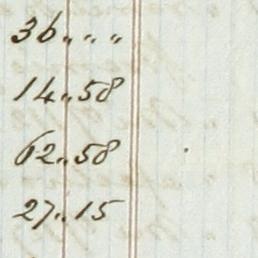 36 〃 〃 〃
14 〃 58
62 〃 58
27 〃 15